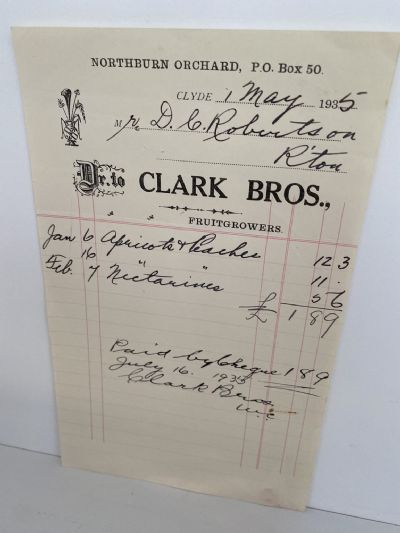 NORTHBURN ORCHARD, P.O. Box 50.
CLYDE 1 May 1935
Mr. D. C. Robertson
R'ton
Dr. to CLARK BROS.,
FRUITGROWERS.
Jan 6 Apricots & Peaches 12 3
16 " " 11 .
Feb. 7 Nectarines 5 6
£ 1 8 9
Paid by Cheque 1 8 9
July 16. 1935
Clark Bros.